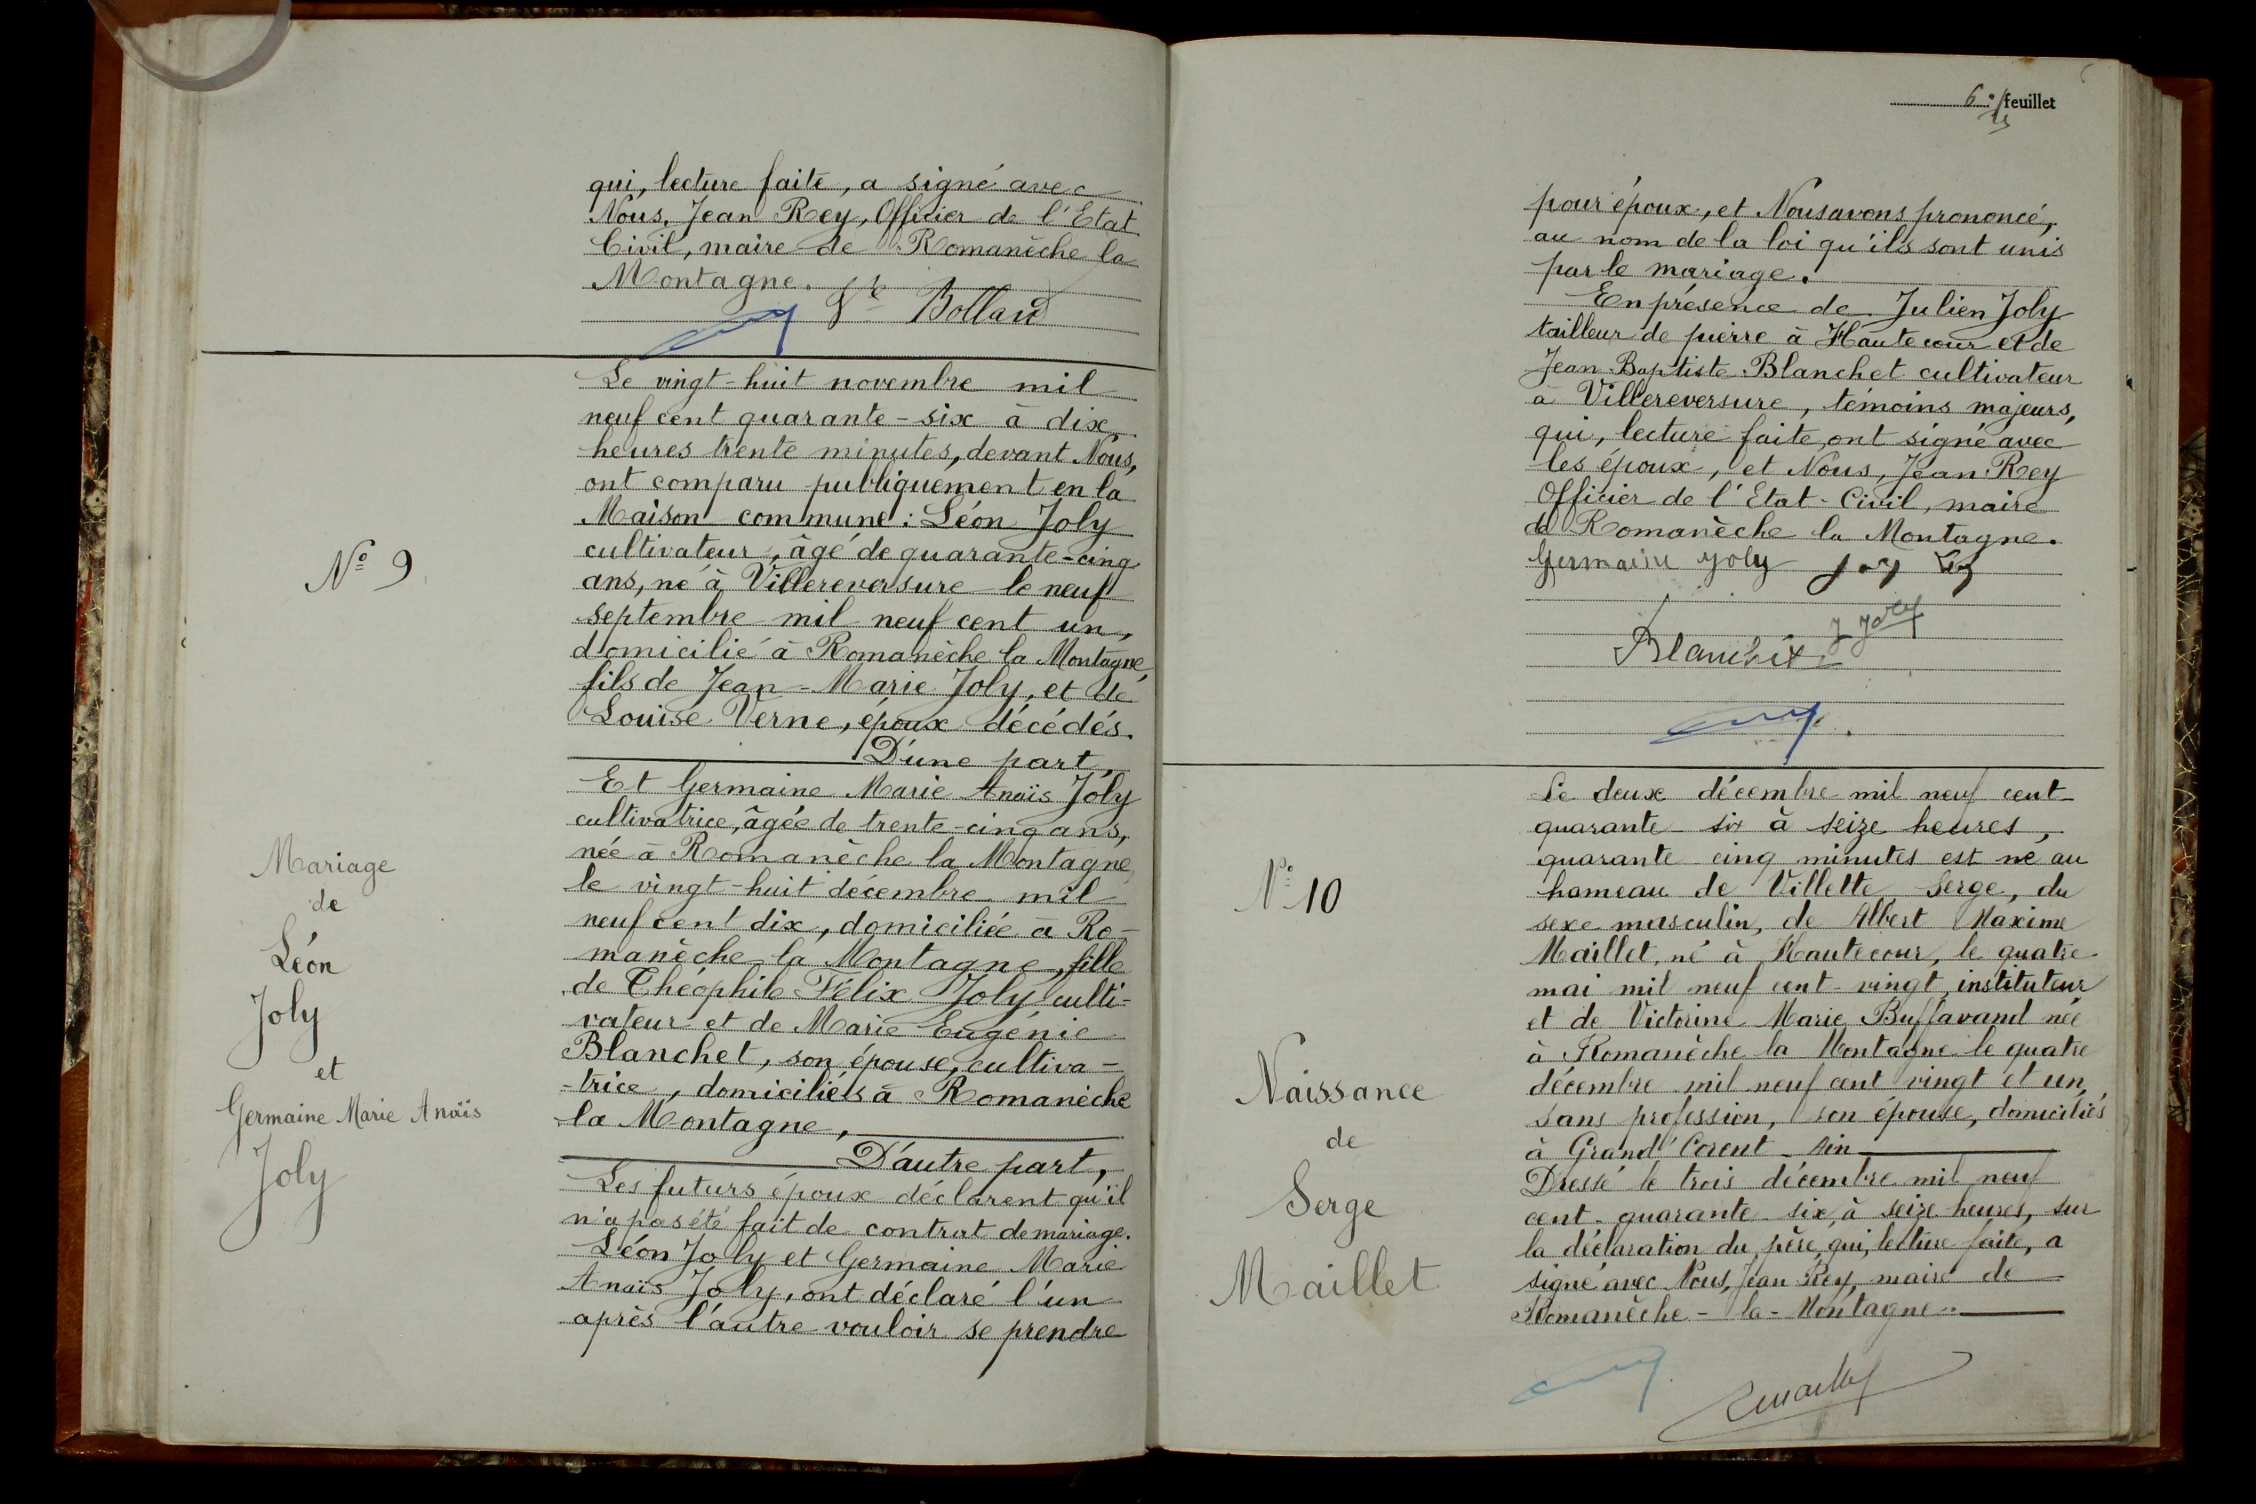 qui, lecture faite, a signé avec
Nous, Jean Rey, Officier de l'Etat
Civil, maire de Romanèche la
Montagne.
Bolland
N° 9
Mariage
de
Léon
Joly
et
Germaine Marie Anaïs
Joly
Le vingt-huit novembre mil
neuf cent quarante-six à dix
heures trente minutes, devant Nous,
ont comparu publiquement en la
Maison commune : Léon Joly
cultivateur, âgé de quarante-cinq
ans, né à Villereversure le neuf
septembre mil neuf cent un,
domicilié à Romanèche la Montagne,
fils de Jean-Marie Joly, et de
Louise Verne, époux décédés.
D'une part,
Et Germaine Marie Anaïs Joly
cultivatrice, âgée de trente-cinq ans,
née à Romanèche la Montagne,
le vingt-huit décembre mil
neuf cent dix, domiciliée à Ro-
manèche la Montagne, fille
de Théophile Félix Joly culti-
vateur et de Marie Eugénie
Blanchet, son épouse, cultiva-
-trice, domiciliés à Romanèche
la Montagne,
D'autre part,
Les futurs époux déclarent qu'il
n'a pas été fait de contrat de mariage.
Léon Joly et Germaine Marie
Anaïs Joly, ont déclaré l'un
après l'autre vouloir se prendre
6e feuillet
pour époux, et Nous avons prononcé,
au nom de la loi qu'ils sont unis
par le mariage.
En présence de Julien Joly
tailleur de pierre à Hautecour et de
Jean Baptiste Blanchet cultivateur
à Villereversure, témoins majeurs,
qui, lecture faite, ont signé avec
les époux, et Nous, Jean Rey
Officier de l'Etat-Civil, maire
de Romanèche la Montagne.
Germaine Joly
J Joly
Blanchet
N° 10
Naissance
de
Serge
Maillet
Le deux décembre mil neuf cent
quarante-six à seize heures,
quarante cinq minutes est né au
hameau de Villette Serge, du
sexe masculin, de Albert Maxime
Maillet, né à Hautecour, le quatre
mai mil neuf cent-vingt, instituteur
et de Victorine Marie Buffavand née
à Romanèche la Montagne le quatre
décembre mil neuf cent vingt et un,
sans profession, son épouse, domiciliés
à Grand'Corent. Ain
Dressé le trois décembre mil neuf
cent-quarante-six, à seize heures, sur
la déclaration du père, qui, lecture faite, a
signé avec Nous, Jean Rey, maire de
Romanèche-la-Montagne.